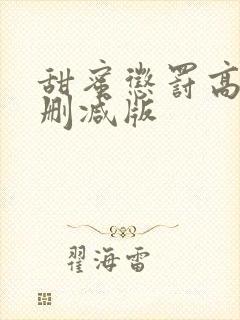 甜蜜懲罰高
刪減版
翟海雷